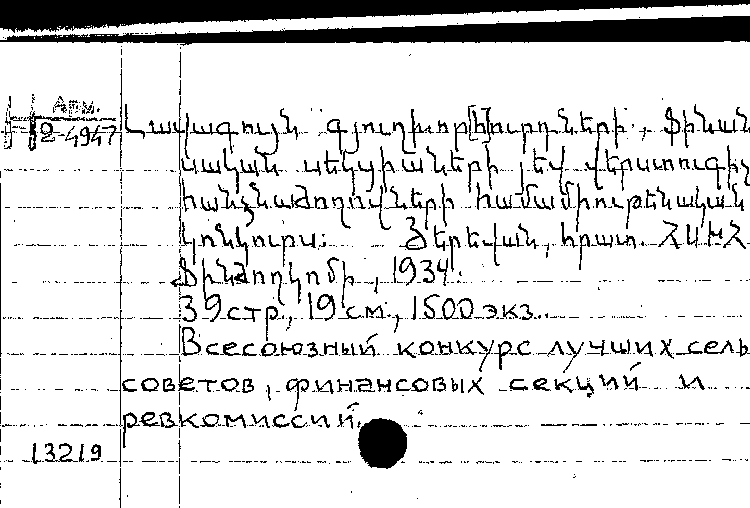 Арм.
2-4947
Լավագույն գյուղխորհուրդների, ֆինան
սական սեկցիաների յեվ վերստուգիչ
հանձնաժողովների համամիութենական
կոնկուրս: Յերեվան, հրատ. ՀՍԽՀ
Ֆինժողկոմի, 1934.
39 стр., 19 см., 1500 экз.
Всесоюзный конкурс лучших сель
советов, финансовых секций и
ревкомиссий.
13219